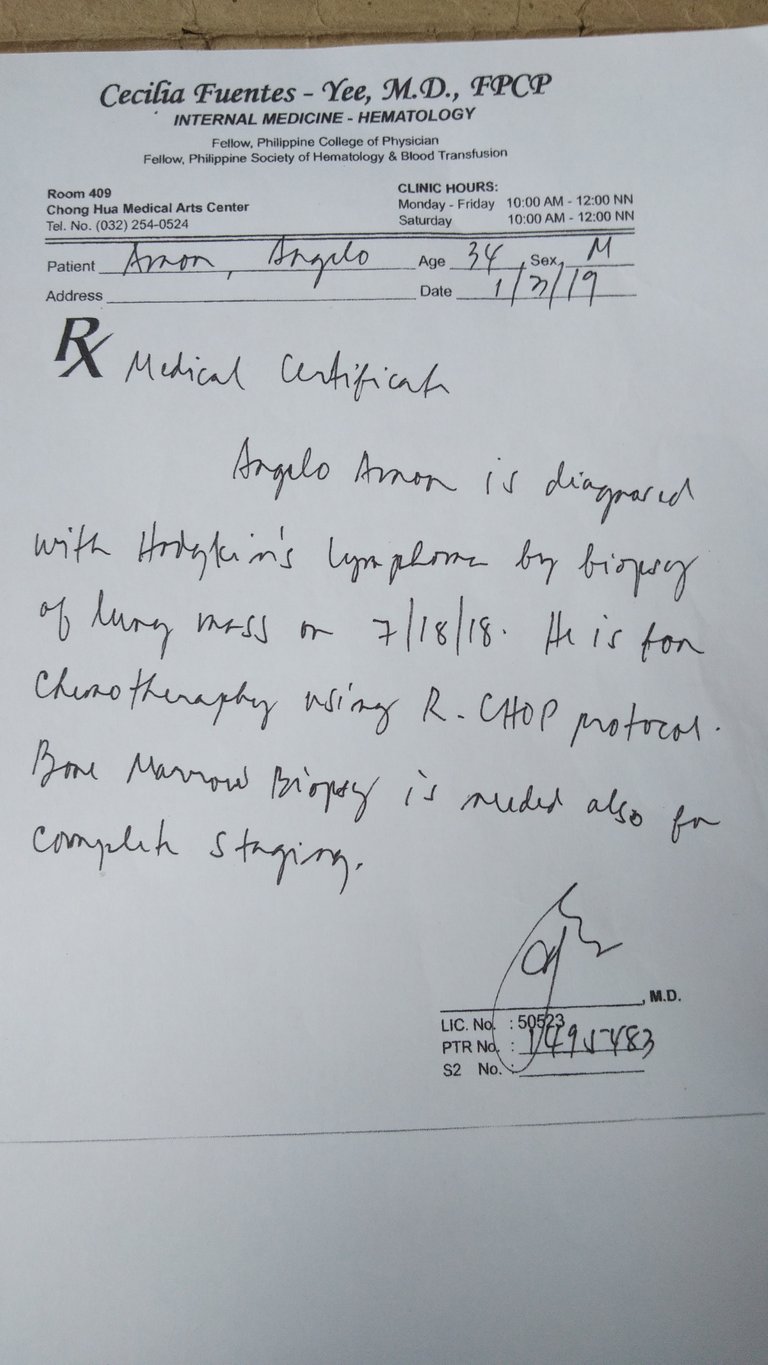 Cecilia Fuentes - Yee, M.D., FPCP
INTERNAL MEDICINE - HEMATOLOGY
Fellow, Philippine College of Physician
Fellow, Philippine Society of Hematology & Blood Transfusion
Room 409
Chong Hua Medical Arts Center
Tel. No. (032) 254-0524
CLINIC HOURS:
Monday - Friday 10:00 AM - 12:00 NN
Saturday 10:00 AM - 12:00 NN
Patient Amon, Angelo Age 34 Sex M
Address Date 1/ /19
Rx Medical Certificate
Angelo Amon is diagnosed
with Hodgkin's lymphoma by biopsy
of lung mass on 7/18/18. He is for
Chemotheraphy using R-CHOP protocol.
Bone Marrow Biopsy is needed also for
complete staging.
, M.D.
LIC. No. : 50523
PTR No. : 1495483
S2 No. :